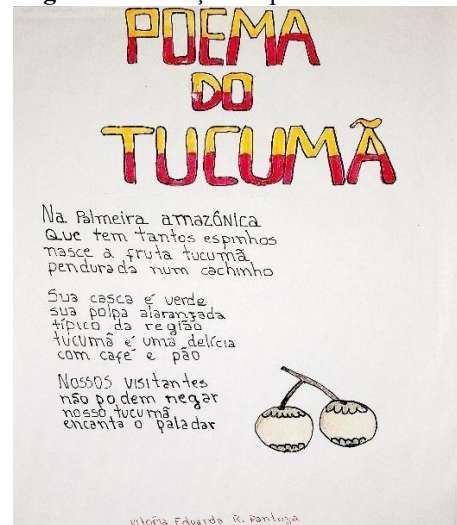 POEMA
DO
TUCUMÃ
Na Palmeira amazônica
Que tem tantos espinhos
nasce a fruta tucumã
pendurada num cachinho
Sua casca é verde
sua polpa alaranjada
típico da região
tucumã é uma delícia
com café e pão
Nossos visitantes
não podem negar
nosso tucumã
encanta o paladar
Vitória Eduarda R. Pantoja